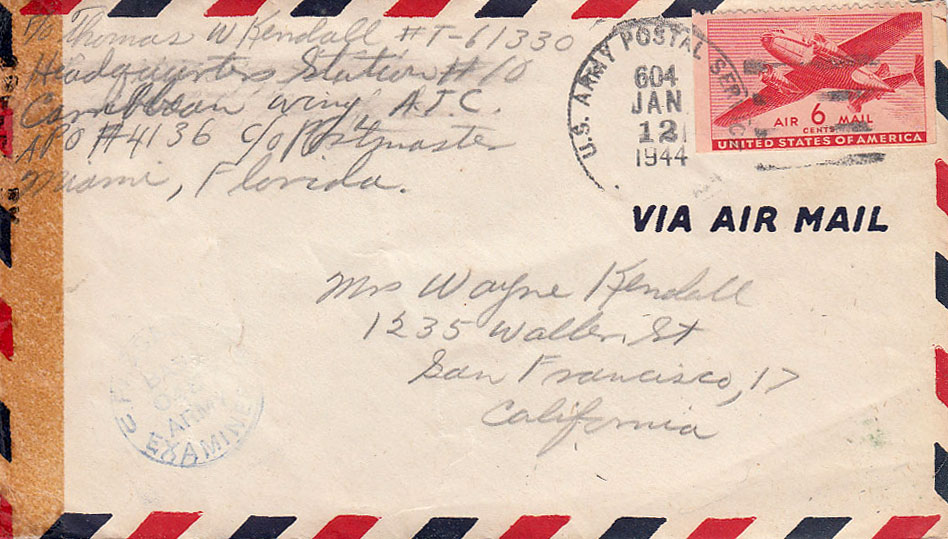 F/O Thomas W Kendall #T-61330
Headquarters, Station #10
Caribbean Wing A.T.C.
APO #4136 c/o Postmaster
Miami, Florida.
U.S. ARMY POSTAL SERVICE
604
JAN
12
1944
AIR 6 MAIL
CENTS
UNITED STATES OF AMERICA
VIA AIR MAIL
Mrs Wayne Kendall
1235 Waller St
San Francisco, 17
California
ARMY
EXAMINE